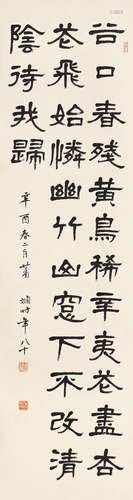 谷口春殘黃鳥稀辛夷花盡杏
花飛始憐幽竹山窓下不改清
陰待我歸
辛酉春二月蕭嫻時年八十